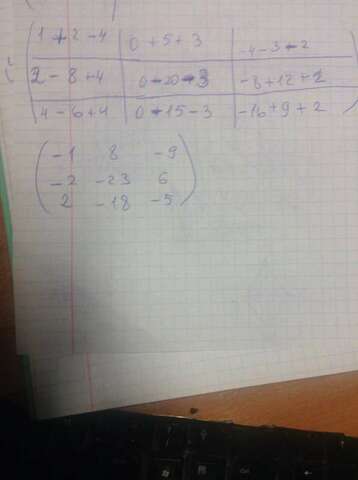 1 + 2 - 4 0 + 5 + 3 -4 - 3 - 2
2 - 8 + 4 0 - 20 - 3 -8 + 12 + 2
4 - 6 + 4 0 - 15 - 3 -16 + 9 + 2
-1 8 -9
-2 -23 6
2 -18 -5